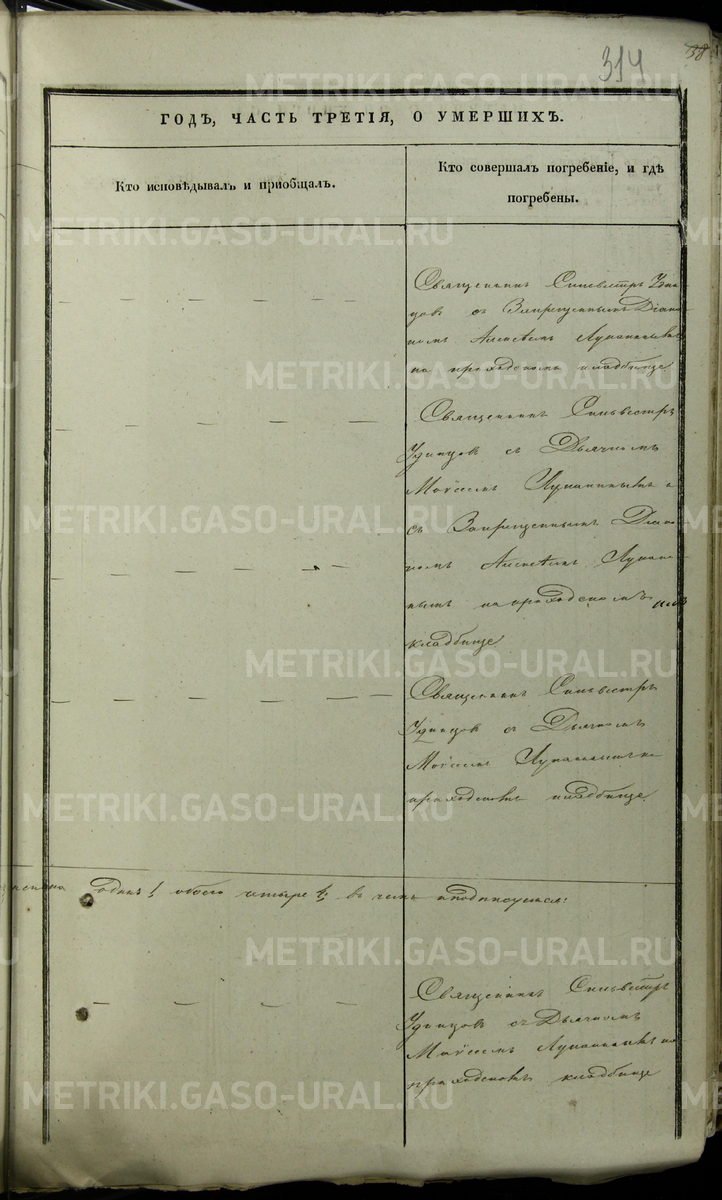 314
38
ГОДЪ, ЧАСТЬ ТРЕТІЯ, О УМЕРШИХЪ.
Кто исповѣдывалъ и пріобщалъ.
Кто совершалъ погребеніе, и гдѣ
погребены.
Священникъ Сильвестръ Удин
цовъ съ Запрещеннымъ Діако
номъ Алексѣемъ
на приходскомъ кладбище
Священникъ Сильвестръ
Удинцовъ съ Дьячкомъ
Моѵсеемъ и
съ Запрещеннымъ Діако
номъ Алексѣемъ
на приходскомъ
кладбище
Священникъ Сильвестръ
Удинцовъ съ Дьячкомъ
Моѵсеемъ на
приходскомъ кладбище
одинъ 1, обоего четыре 4; въ чемъ и подписуемся:
Священникъ Сильвестръ
Удинцовъ съ Дьячкомъ
Моѵсеемъ на
приходскомъ кладбище
METRIKI.GASO-URAL.RU